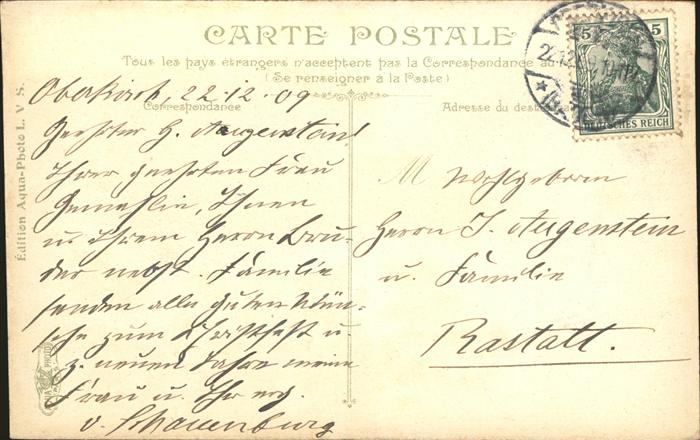 CARTE POSTALE
Tous les pays étrangers n'acceptent pas la Correspondance au
(Se renseigner à la Poste)
Correspondance
Adresse du dest
Édition Aqua-Photo L. V. S.
5 5
DEUTSCHES REICH
Oberkirch, 22.12.09
Geehrter H. Augenstein!
Ihrer geehrten Frau
Gemahlin, Ihnen
u. Ihrem Herrn Bru-
der nebst Familie
senden alle guten Wün-
sche zum Christfest u.
z. neuen Jahre meine
Frau u. Ihr erg.
v. Schauenburg
M Wohlgeboren
Herrn J. Augenstein
u. Familie
Rastatt.